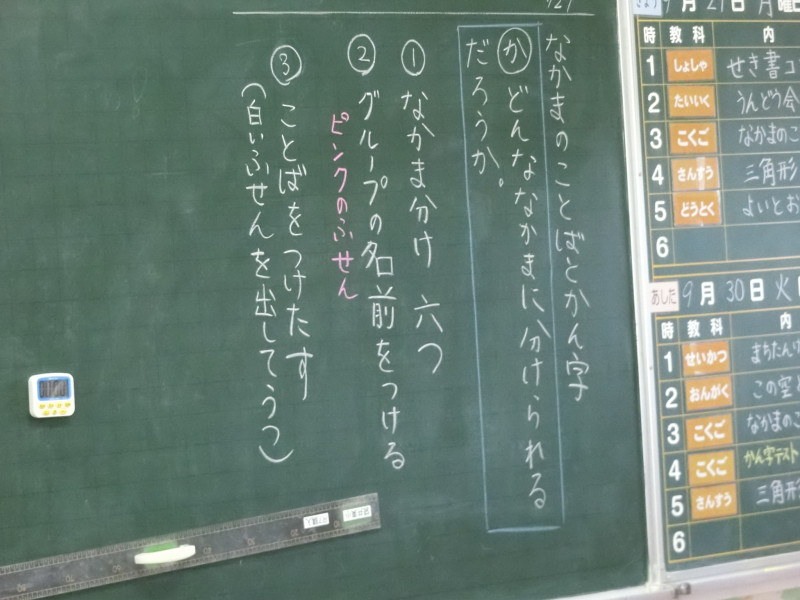 なかまのことばとかん字
か どんななかまに分けられる
だろうか。
① なかま分け 六つ
② グループの名前をつける
ピンクのふせん
③ ことばをつけたす
(白いふせんを出してうつ)
9月29日 月 曜日
時 教科 内
1 しょしゃ せき書コ
2 たいいく うんどう会
3 こくご なかまのこ
4 さんすう 三角形
5 どうとく よいとお
6
あした 9月30日 火
時 教科 内
1 せいかつ まちたん
2 おんがく この空
3 こくご なかまのこ
4 こくご かん字テスト
5 さんすう 三角形
6